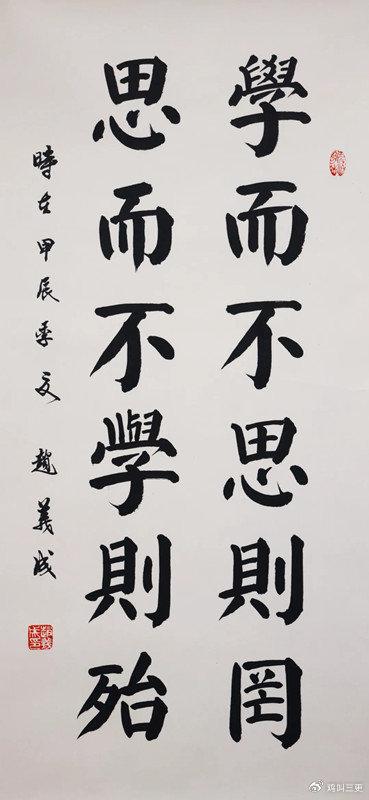 學而不思則罔
思而不學則殆
時在甲辰季夏 趙義成
鸡叫三更